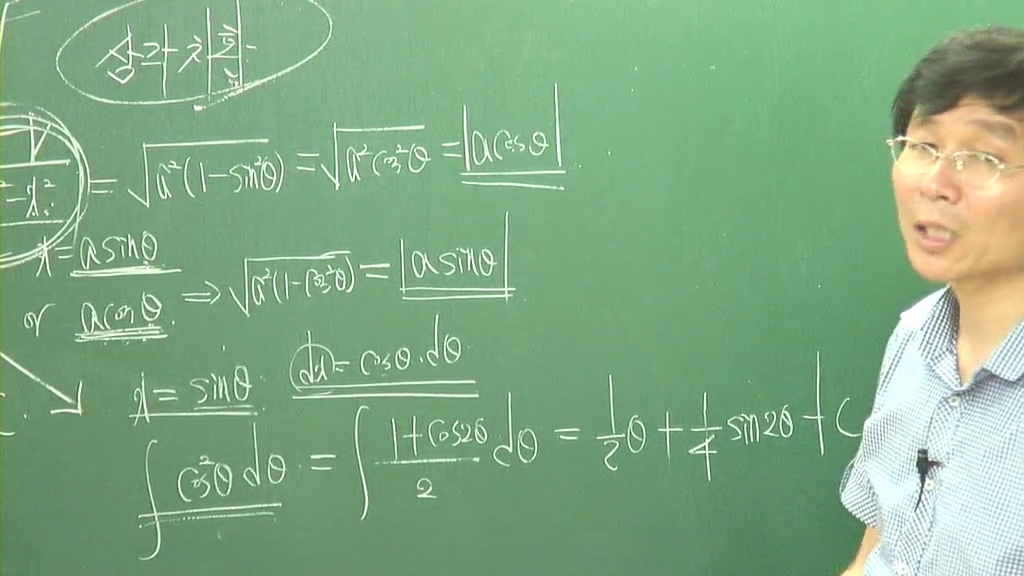 = √a²(1-sin²θ) = √a²cos²θ = |acosθ|
x = asinθ
or acosθ ⇒ √a²(1-cos²θ) = |asinθ|
x = sinθ dx = cosθ·dθ
∫cos²θ dθ = ∫ 1+cos2θ/2 dθ = 1/2 θ + 1/4 sin2θ + C